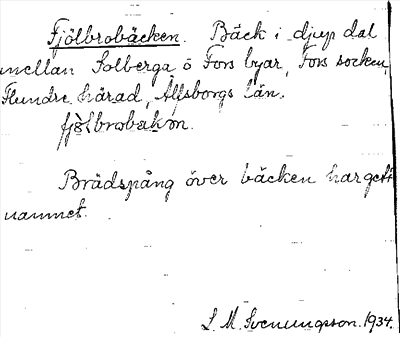 Fjölbrobäcken. Bäck i djup dal
mellan Solberga o Fors byar, Fors socken,
Flundre härad, Älfsborgs län.
Brädspång över bäcken har gett
namnet.
S. M. Svenungsson. 1934.